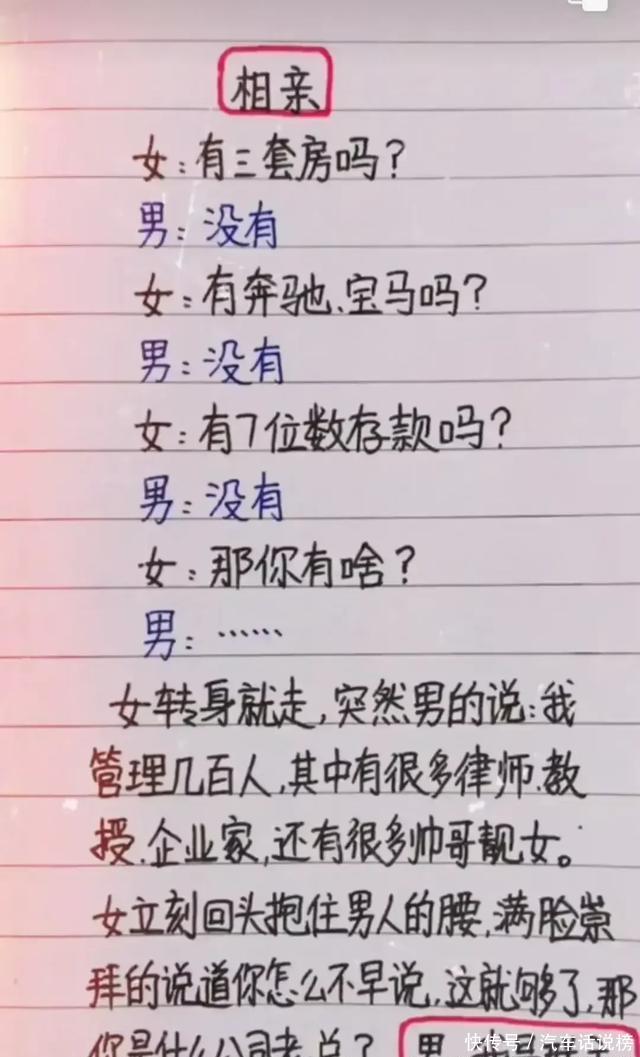 相亲
女:有三套房吗?
男:没有
女:有奔驰、宝马吗?
男:没有
女:有7位数存款吗?
男:没有
女:那你有啥?
男:……
女转身就走,突然男的说:我
管理几百人,其中有很多律师、教
授、企业家,还有很多帅哥靓女。
女立刻回头抱住男人的腰,满脸崇
拜的说道你怎么不早说,这就够了,那
你是什么公司老总? 男
快传号/汽车话说榜